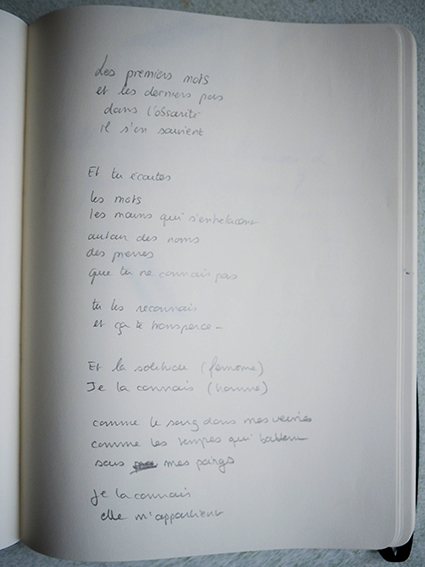 Les premiers mots
et les derniers pas
dans l'obscurité
il s'en souvient
Et tu écoutes
les mots
les mains qui s'entrelacent
autour des noms
des pierres
que tu ne connais pas
tu les reconnais
et ça te transperce
Et la solitude (femme)
Je la connais (homme)
comme le sang dans mes veines
comme les tempes qui battent
sous mes poings
Je la connais
elle m'appartient